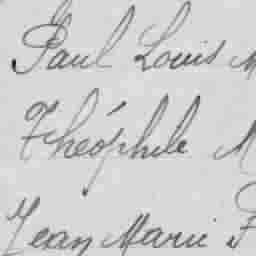 Paul Louis M
Théophile M
Jean Marie F